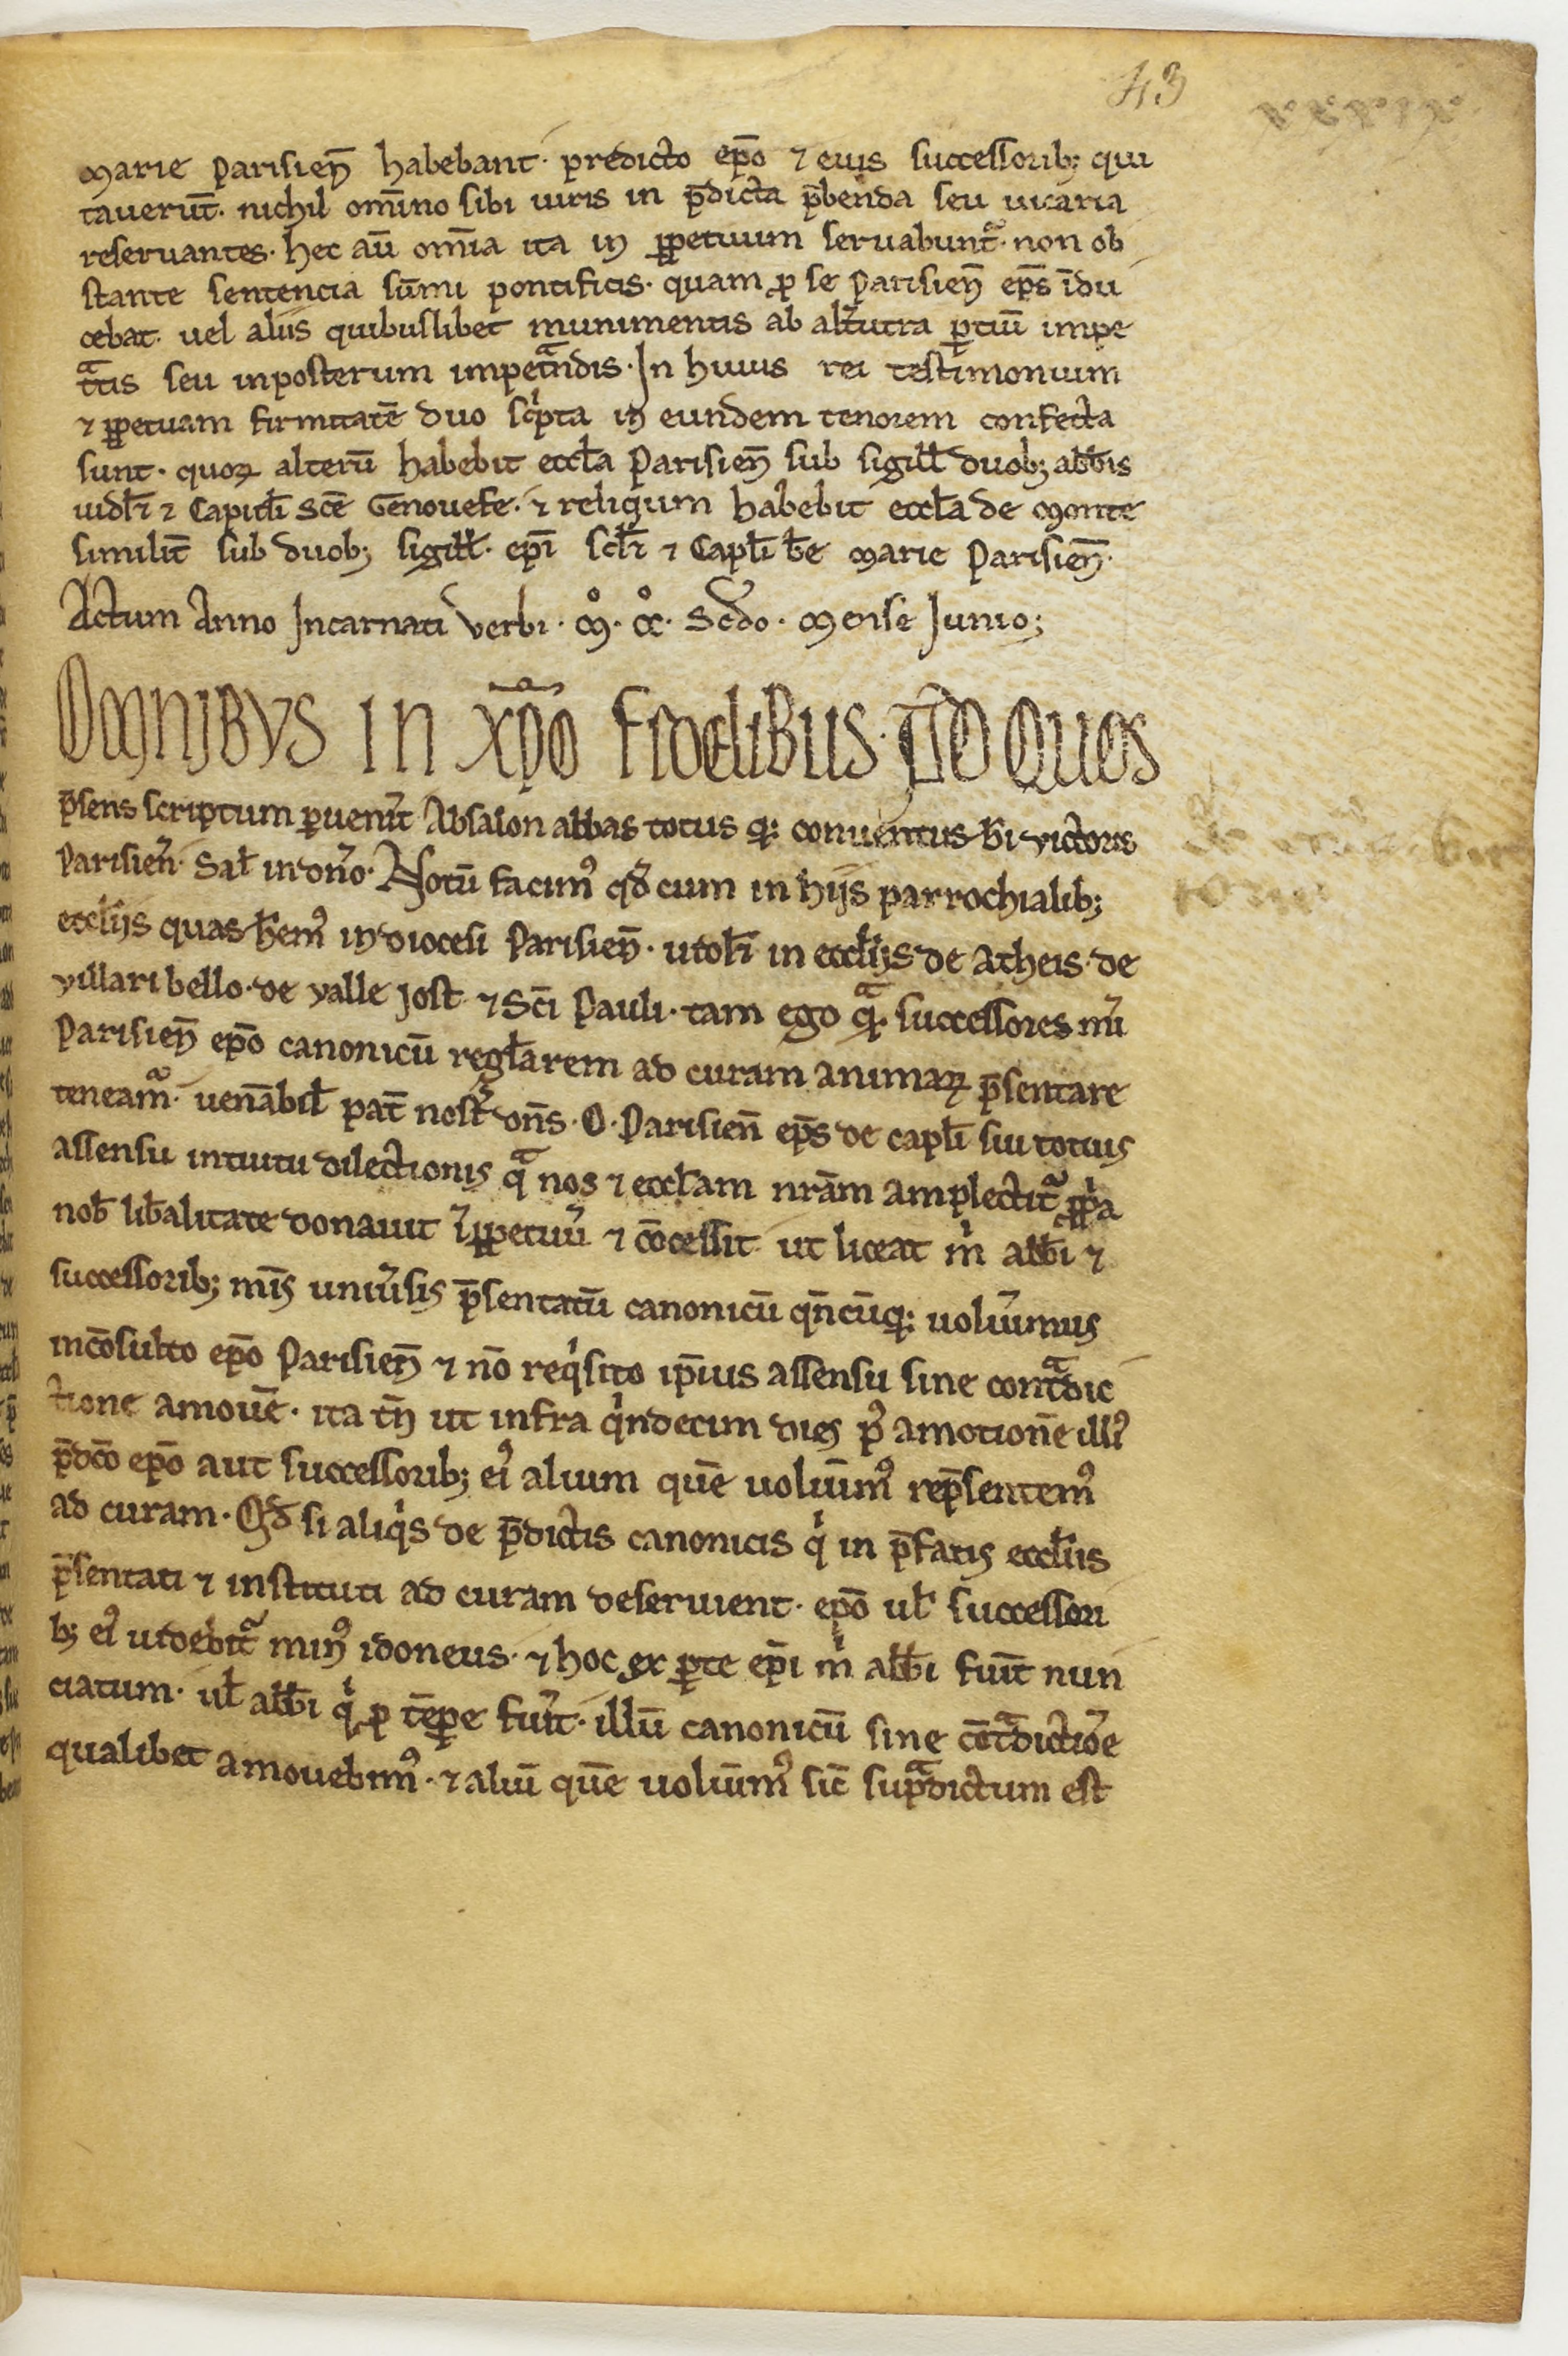 43
marie parisien̄ habebant· predicto ep̄o ⁊ eius successorib; qui
tauerūt· nichil om̄ino sibi iuris in p̄dicta p̄benda seu uicaria
reseruantes· hec aū om̄ia ita in ꝑpetuum seruabunt᷑· non ob
stante sentencia sūmi pontificis· quam ꝓ se parisien̄ ep̄s īdu
cebat· uel aliis quibuslibet munimentis ab alt̾utra ꝑtiū impe
tᵃtis seu inposterum impetᵃndis· In huius rei testimonium
⁊ ꝑpetuam firmitatē duo scⁱpta in eundem tenorem confecta
sunt· quoꝝ alterū habebit eccƚa parisien̄ sub sigilƚ duob; abb̄is
uidƚ⁊ ⁊ Capitƚi sc̄e Genouefe· ⁊ reliqum habebit eccƚa de monte
similit̄ sub duob; sigilƚ· ep̄i scƚ⁊ ⁊ Capƚi b̄e marie parisien̄·
Actum Anno Incarnati Verbi· mͦ· ccͦ· Scd̄o· mense Junio;
OMNIBVS IN XP̄O FIDELIBUS· AD QUOS
p̄sens scriptum ꝑuen̾it Absalon abbas totus q; conuentus b̄i victoris
parisien̄· Saƚ in dn̄o· Notū facimꝰ qd̄ cum in hijs parrochialib;
eccƚijs quas hēmꝰ in diocesi parisien̄· uidƚ⁊ in eccƚijs de Atheis· de
villari bello· de valle Jost· ⁊ Sc̄i pauli· tam ego qᵃ· successores m̄i
parisien̄ ep̄o canonicū regƚarem ad curam animaꝝ p̄sentare
teneam᷑· uenābiƚ pat̄ nost̾ dn̄s· O· parisien̄ ep̄s de capƚi sui totius
assensu intuitu dilectionis qᵃ nos ⁊ eccƚam nrām amplectit᷑ ꝓpⁱa
nob̄ lib̄alitate donauit ī ꝑpetuū ⁊ cōcessit· ut liceat mⁱ abb̄i ⁊
successorib; mīs uniu̾sis p̄sentatū canonicū qn̄cūq; uolu̾imus
incōsulto ep̄o parisien̄ ⁊ nō reqⁱsito ip̄ius assensu sine contᵃdic
tione amouē· ita tn̄ ut infra qⁱndecim dies pꝰ amotionē illiꝰ
p̄dc̄o ep̄o aut successorib; eiꝰ alium quē uolu̾imꝰ rep̄sentemꝰ
ad curam· Qd̄ si aliqⁱs de p̄dictis canonicis qⁱ in p̄fatis eccƚiis
p̄sentati ⁊ instituti ad curam deseruient· ep̄o uƚ successori
b; eiꝰ uidebit᷑ minꝰ idoneus· ⁊ hoc ex ꝑte ep̄i mⁱ abb̄i fu̾it nun
ciatum· uƚ abb̄i qⁱ ꝓ tēpe fu̾it· illū canonicū sine cōtᵃdictiōe
qualibet amouebimꝰ· ⁊ aliū quē uolu̾imꝰ sic̄ supᵃdictum est